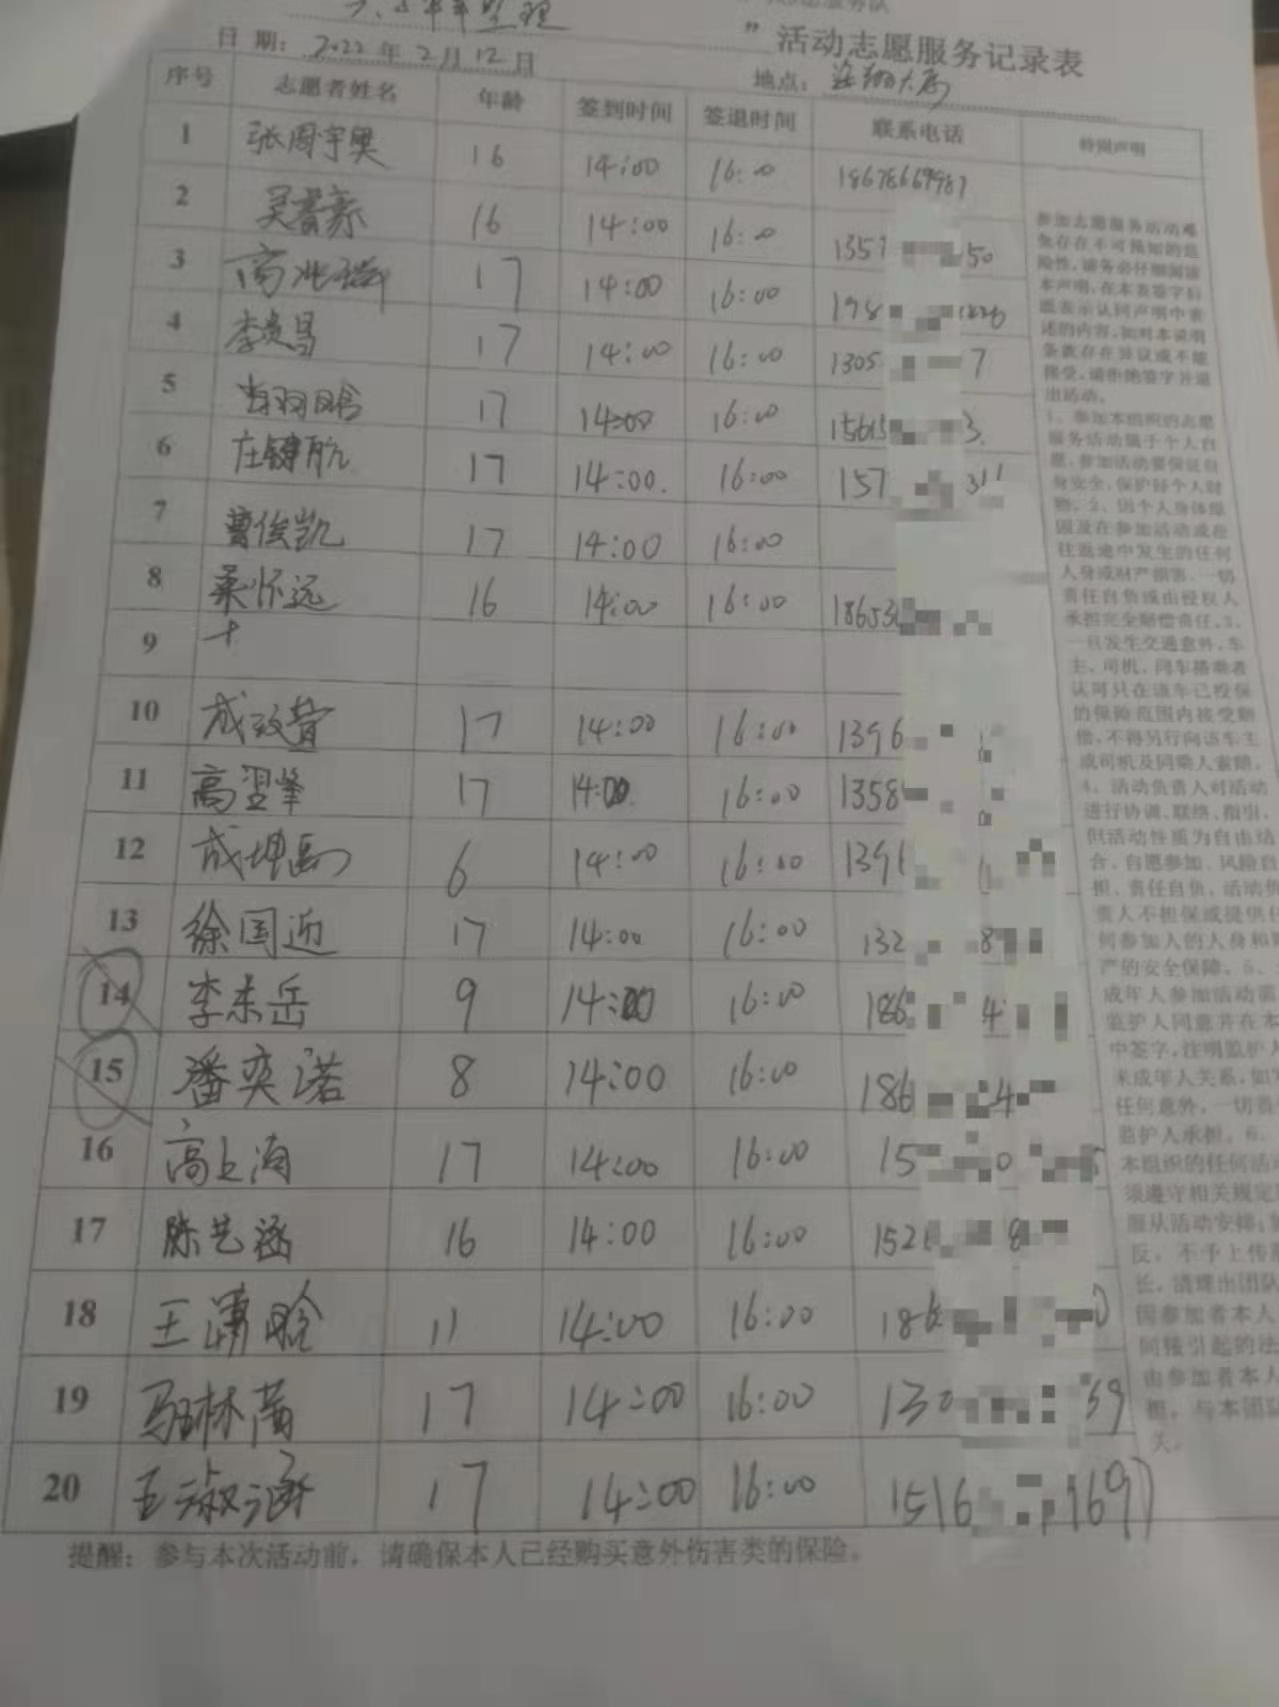 服务队
”活动志愿服务记录表
日 期: 2022 年 2 月 12 日
地点:
序号 志愿者姓名 年龄 签到时间 签退时间 联系电话 特别声明
1 张周宇奥 16 14:00 16:00 18678669987
2 16 14:00 16:00 1357 50
3 17 14:00 16:00 198
4 17 14:00 16:00 1305 7
5 17 14:00 16:00 15615 3.
6 庄键航 17 14:00. 16:00 157 311
7 曹俊凯 17 14:00 16:00
8 桑怀远 16 14:00 16:00 18653
9
10 成致营 17 14:00 16:00 1396
11 高翌峰 17 14:00 16:00 1358
12 成坤 6 14:00 16:00 1391
13 徐国近 17 14:00 16:00 132 8
14 李东岳 9 14:00 16:00 186 4
15 潘奕诺 8 14:00 16:00 186 4
16 高上海 17 14:00 16:00 15 0
17 陈艺涵 16 14:00 16:00 152 8
18 王 晗 11 14:00 16:00 186
19 林 17 14:00 16:00 130 39
20 王淑涵 17 14:00 16:00 1516 1697
参加志愿服务活动难
免存在不可预知的危
险性,请务必仔细阅读
本声明,在本表签字后
既表示认同声明中表
述的内容,如对本说明
条款存在异议或不能
接受,请拒绝签字并退
出活动。
1、参加本组织的志愿
服务活动属于个人自
愿,参加活动要保证自
身安全,保护好个人财
物。2、因个人身体原
因及在参加活动或在
往返途中发生的任何
人身或财产损害,一切
责任自负或由侵权人
承担完全赔偿责任。3、
一旦发生交通意外,车
主、司机、同车搭乘者
认可只在该车已投保
的保险范围内接受赔
偿,不得另行向该车主
或司机及同乘人索赔。
4、活动负责人对活动
进行协调、联络、指引,
但活动性质为自由结
合、自愿参加、风险自
担、责任自负,活动负
责人不担保或提供任
何参加人的人身和财
产的安全保障。5、
成年人参加活动需
监护人同意并在本
中签字,注明监护人
未成年人关系,如
任何意外,一切责
监护人承担。6、
本组织的任何活
须遵守相关规定
服从活动安排;
反,不予上传
长,清理出团队
因参加者本人
间接引起的法
由参加者本人
担,与本团队
关。
提醒:参与本次活动前,请确保本人已经购买意外伤害类的保险。